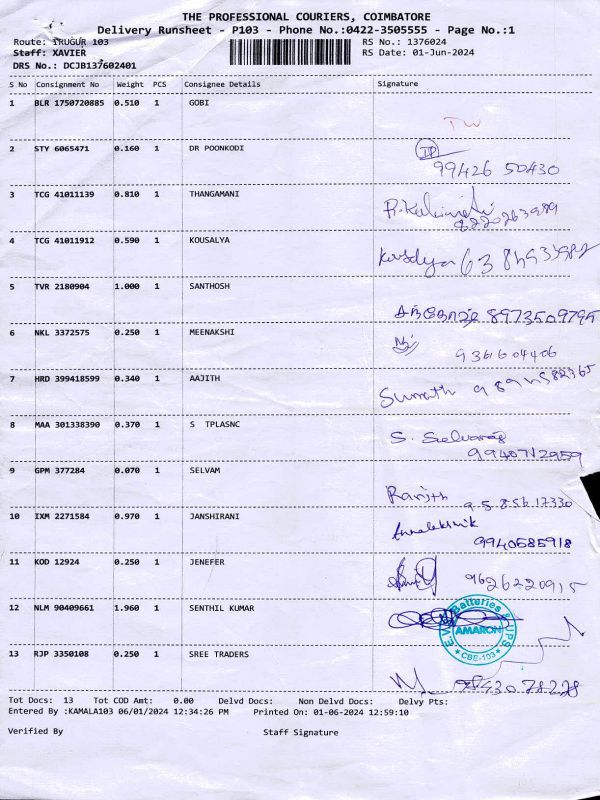 THE PROFESSIONAL COURIERS, COIMBATORE
Delivery Runsheet - P103 - Phone No.:0422-3505555 - Page No.:1
Route: IRUGUR 103 RS No.: 1376024
Staff: XAVIER RS Date: 01-Jun-2024
DRS No.: DCJB137602401
S No Consignment No Weight PCS Consignee Details Signature
1 BLR 1750720885 0.510 1 GOBI
TW
2 STY 6065471 0.160 1 DR POONKODI
99426 50430
3 TCG 41011139 0.810 1 THANGAMANI
8220263989
4 TCG 41011912 0.590 1 KOUSALYA
Kousalya
5 TVR 2180904 1.000 1 SANTHOSH
8973509795
6 NKL 3372575 0.250 1 MEENAKSHI
936104406
7 HRD 399418599 0.340 1 AAJITH
8 MAA 301338390 0.370 1 S TPLASNC
S. Selvaraj
9940712959
9 GPM 377284 0.070 1 SELVAM
Ranjith 9585617330
10 IXM 2271584 0.970 1 JANSHIRANI
9940585918
11 KOD 12924 0.250 1 JENEFER
9626220915
12 NLM 90409661 1.960 1 SENTHIL KUMAR
Batteries & UPS
AMARON
CBE-103
13 RJP 3350108 0.250 1 SREE TRADERS
Tot Docs: 13 Tot COD Amt: 0.00 Delvd Docs: Non Delvd Docs: Delvy Pts:
Entered By :KAMALA103 06/01/2024 12:34:26 PM Printed On: 01-06-2024 12:59:10
Verified By Staff Signature